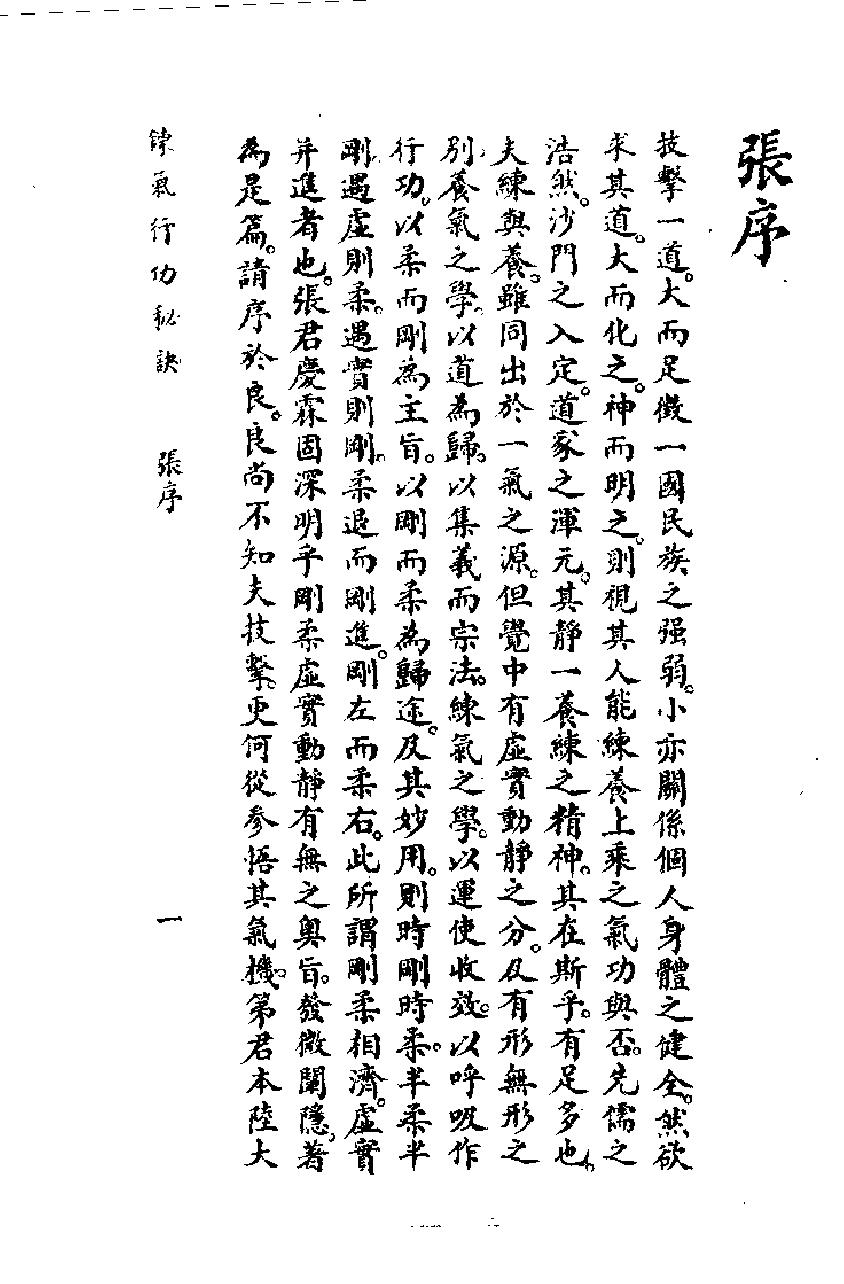 張序
技擊一道。大而足徵一國民族之强弱。小亦關係個人身體之健全。然欲
求其道。大而化之。神而明之。則視其人能練養上乘之氣功與否。先儒之
浩然。沙門之入定。道家之渾元。其靜一養練之精神。其在斯乎。有足多也。
夫練與養。雖同出於一氣之源。但覺中有虛實動靜之分。及有形無形之
別。養氣之學。以道為歸。以集義而宗法。練氣之學。以運使收效。以呼吸作
行功。以柔而剛為主旨。以剛而柔為歸途。及其妙用。則時剛時柔。半柔半
剛。遇虛則柔。遇實則剛。柔退而剛進。剛左而柔右。此所謂剛柔相濟。虛實
并進者也。張君慶霖固深明乎剛柔虛實動靜有無之奧旨。發微闡隱。著
為是篇。請序於良。良尚不知夫技擊。更何從參悟其氣機。第君本陸大
鍊氣行功秘訣　張序　一